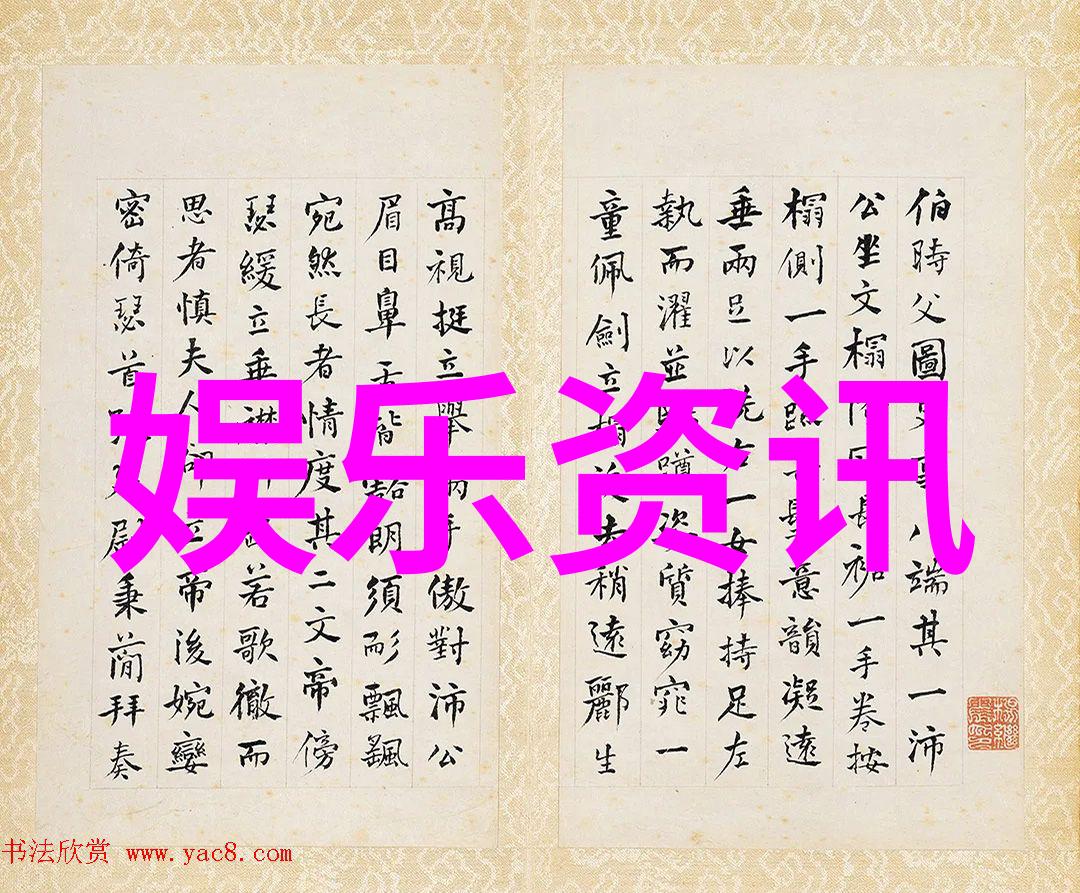 伯時父圖八端其一沛
公坐文榻長裾一手卷按
榻側一手意韻凝遠
垂兩足以一女捧持足左
執而濯並蹲姿質窈窕一
童佩劍立去稍遠酈生
高視挺立舉兩手傲對沛公
眉目鼻舌皆豁朗須髟飄飄
宛然長者情度其二文帝傍
瑟緩立垂襟若歌徹而
思者慎夫人卻立帝後婉孌
密倚瑟首秉蕑拜奏
娱乐资讯
书法欣赏 www.yac8.com